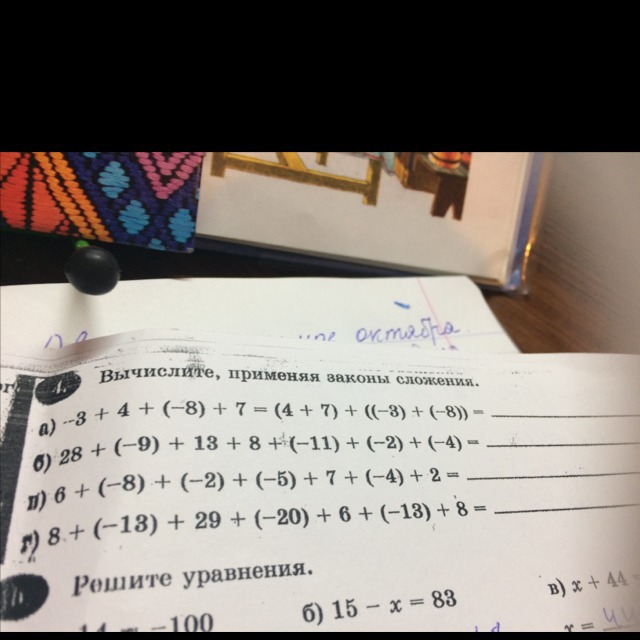 октября
Вычислите, применяя законы сложения.
а) -3 + 4 + (-8) + 7 = (4 + 7) + ((-3) + (-8)) =
б) 28 + (-9) + 13 + 8 + (-11) + (-2) + (-4) =
в) 6 + (-8) + (-2) + (-5) + 7 + (-4) + 2 =
г) 8 + (-13) + 29 + (-20) + 6 + (-13) + 8 =
Решите уравнения.
-100 б) 15 - x = 83 в) x + 44
x = 44